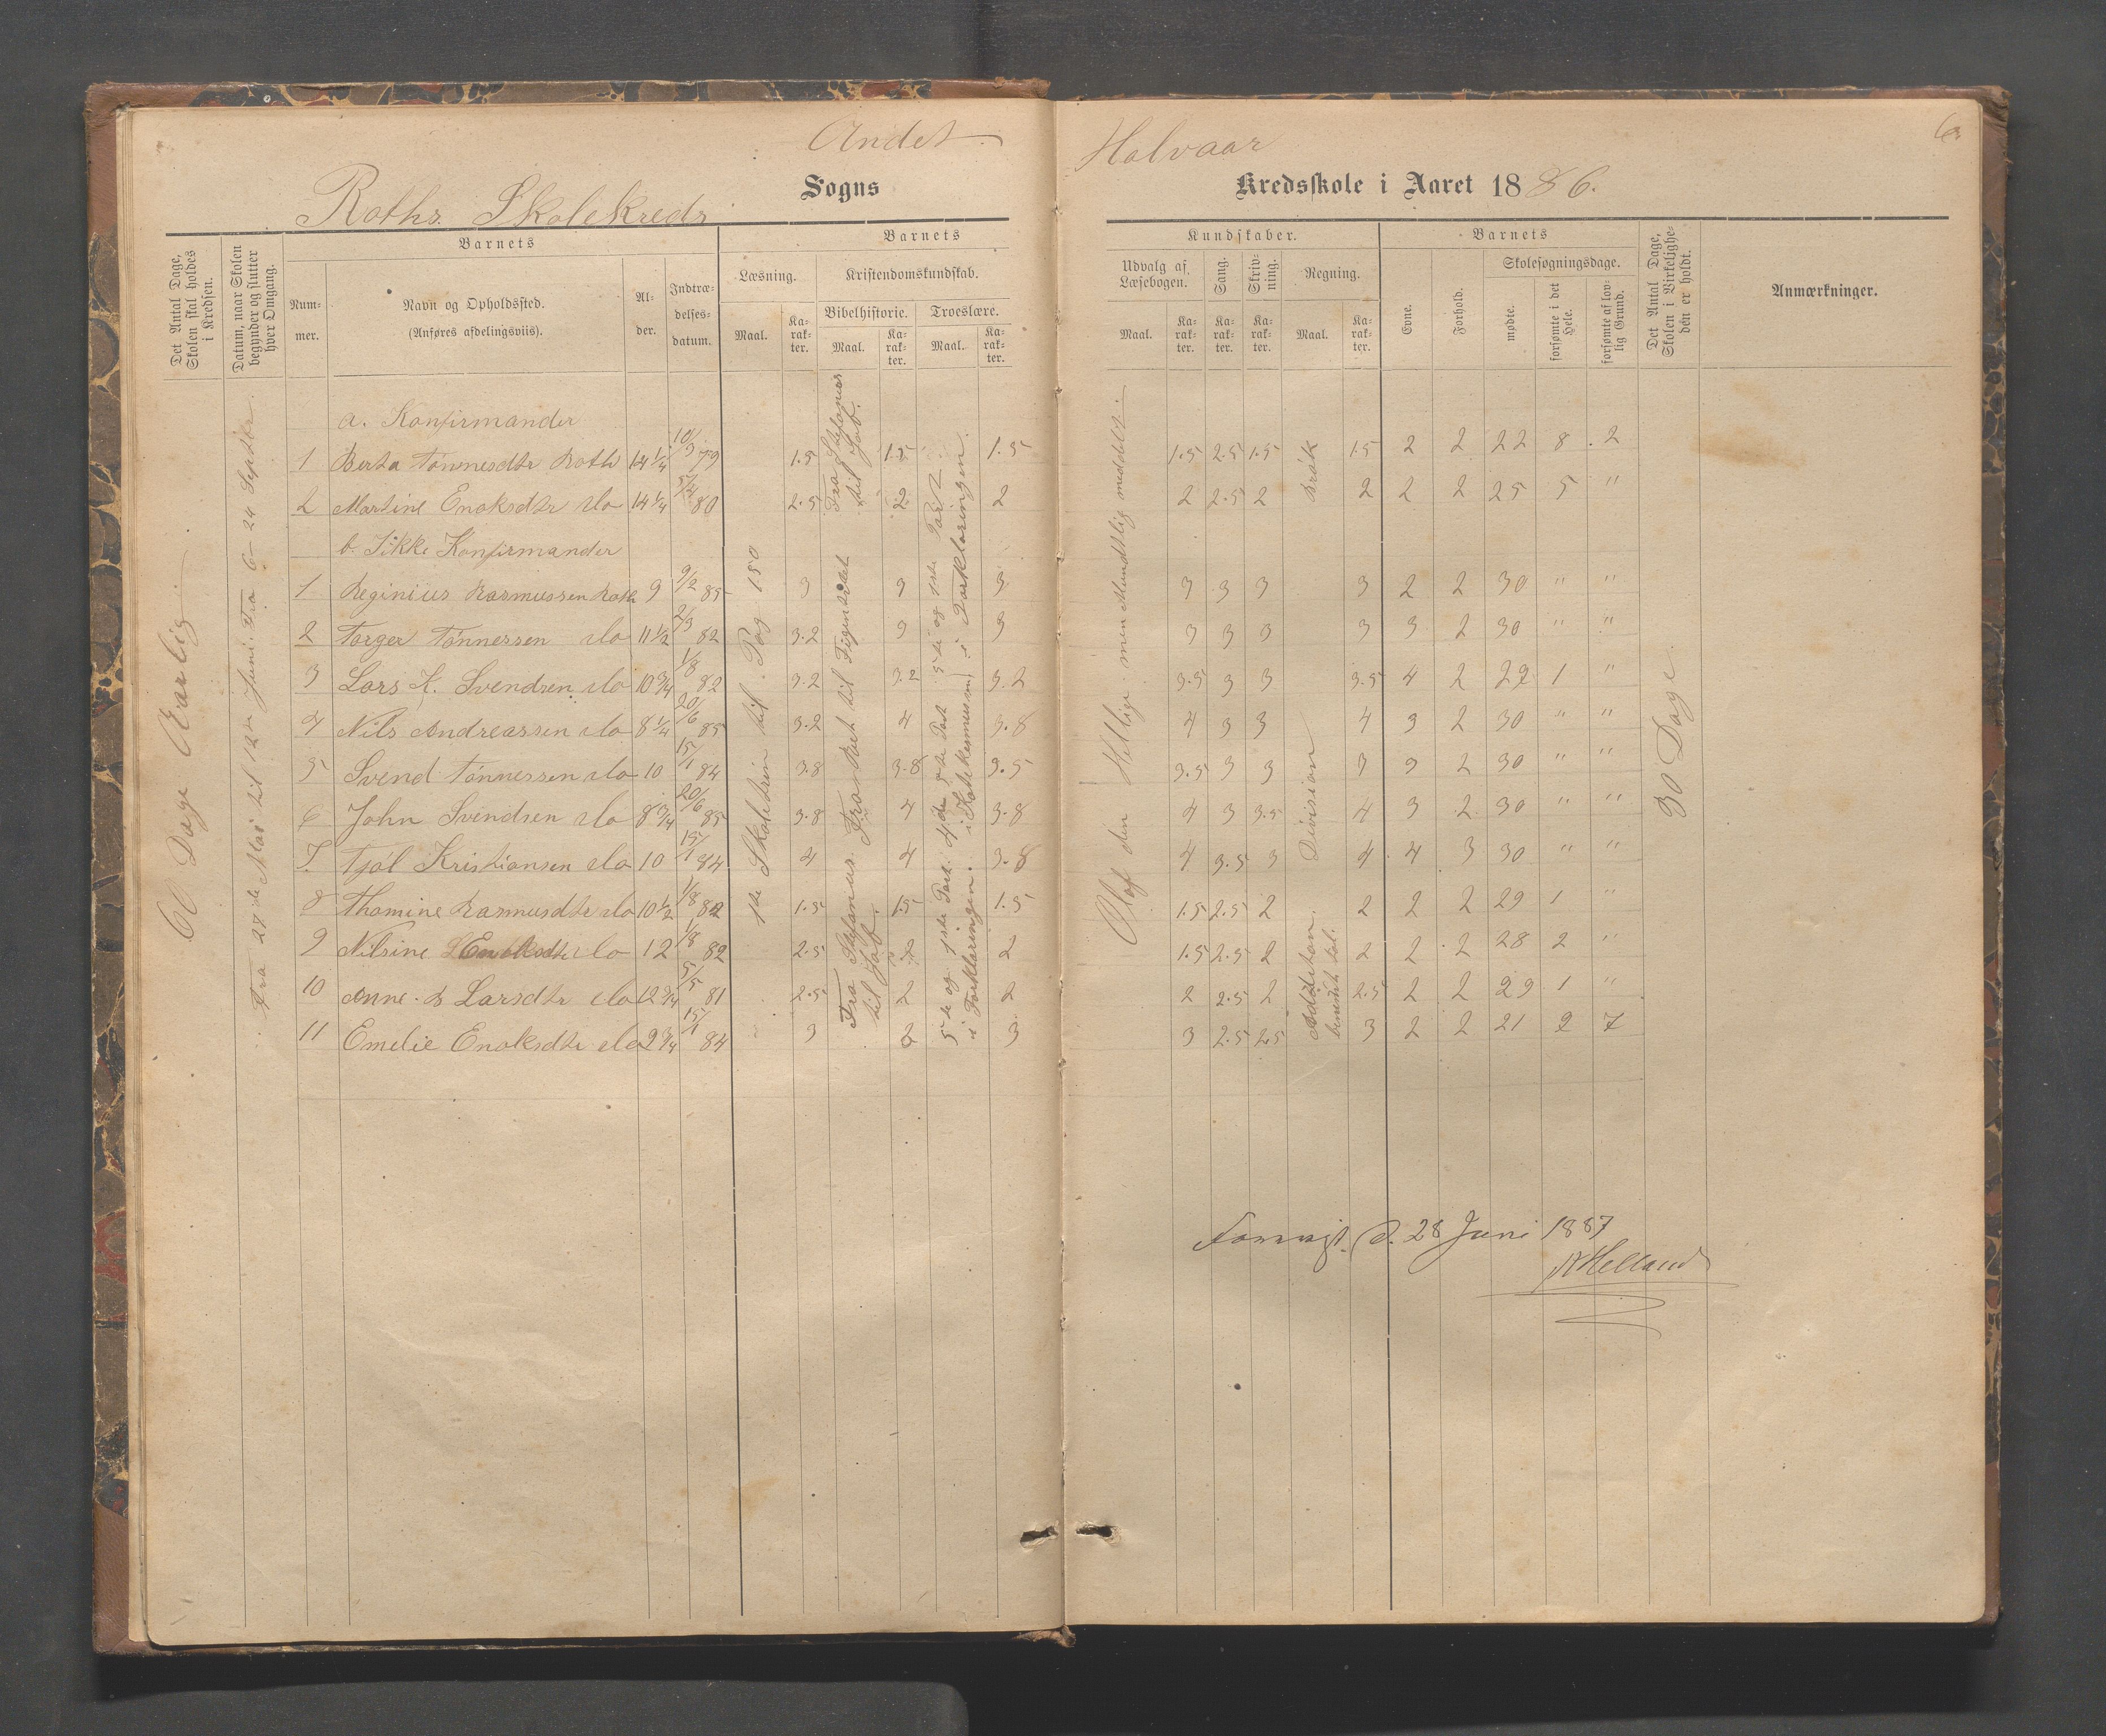 Andet Halvaar
Roths Skolekreds Sogns Kredsskole i Aaret 1886.
Det Antal Dage, Skolen skal holdes i Kredsen.
Datum, naar Skolen begynder og slutter hver Omgang.
Barnets
Num-mer.
Navn og Opholdssted.
(Anføres afdelingsviis).
Al-der.
Indtræ-delses-datum.
Barnets Kundskaber.
Læsning.
Maal.
Ka-rak-ter.
Kristendomskundskab.
Bibelhistorie.
Maal.
Ka-rak-ter.
Troeslære.
Maal.
Ka-rak-ter.
Udvalg af Læsebogen.
Maal.
Ka-rak-ter.
Sang.
Ka-rak-ter.
Skriv-ning.
Ka-rak-ter.
Regning.
Maal.
Ka-rak-ter.
Barnets
Evne.
Forhold.
Skolesøgningsdage.
mødte.
forsømte i det Hele.
forsømte af lov-lig Grund.
Det Antal Dage, Skolen i Virkelighe-den er holdt.
Anmærkninger.
60 Dage Aarlig
Fra 27de Mai til 12te Juni. Fra 6 - 24 Septbr.
a. Konfirmander
1 Berta Tönnesdtr Roth 14 1/4 10/3 79 1.5 1.5 1.5 1.5 2.5 1.5 1.5 2 2 22 8 2
2 Martine Enoksdtr do 14 1/4 80 2.5 2 2 2 2.5 2 2 2 2 25 5 "
b. Ikke Konfirmander
1 Reginius Rasmussen Roth 9 9/2 85 3 3 3 3 3 3 3 2 2 30 " "
2 Torger Tönnessen do 11 1/2 2/3 82 3.2 3 3 3 3 3 3 3 2 30 " "
3 Lars K. Svendsen do 10 3/4 1/8 82 3.2 3.2 3.2 3.5 3 3 3.5 4 2 29 1 "
4 Nils Andreassen do 8 1/4 20/6 85 3.2 4 3.8 4 3 3 4 3 2 30 " "
5 Svend Tönnessen do 10 15/1 84 3.8 3.8 3.5 3.5 3 3 3 3 2 30 " "
6 John Svendsen do 8 3/4 20/6 85 3.8 4 3.8 4 3 3.5 4 3 2 30 " "
7. Tjöl Kristiansen do 10 15/1 84 4 4 3.8 4 3.5 3 4 4 3 30 " "
8 Thomine Rasmusdtr do 10 1/2 1/8 82 1.5 1.5 1.5 1.5 2.5 2 2 2 2 29 1 "
9 Nilsine Enoksdtr do 12 1/8 82 2.5 2 2 1.5 2.5 2 2 2 2 28 2 "
10 Anne B Larsdtr do 12 3/4 5/5 81 2.5 2 2 2 2.5 2 2.5 2 2 29 1 "
11 Emelie Enoksdtr do 9 3/4 15/1 84 3 2 3 3 2.5 2.5 3 2 2 21 2 7
1ste Skoletrin til Pag 150
Fra Stefanus til Job.
Fra Stefanus til Job.
5te og 1ste Part i Forklaringen.
4de 5te Part i Katekesmusen
5te og 1ste Part i Forklaringen.
Olaf den Hellige men Mundtlig meddelt.
Brök
Division
Addition benevnt tal.
30 Dage
Forevist d. 28 Juni 1887
Helland